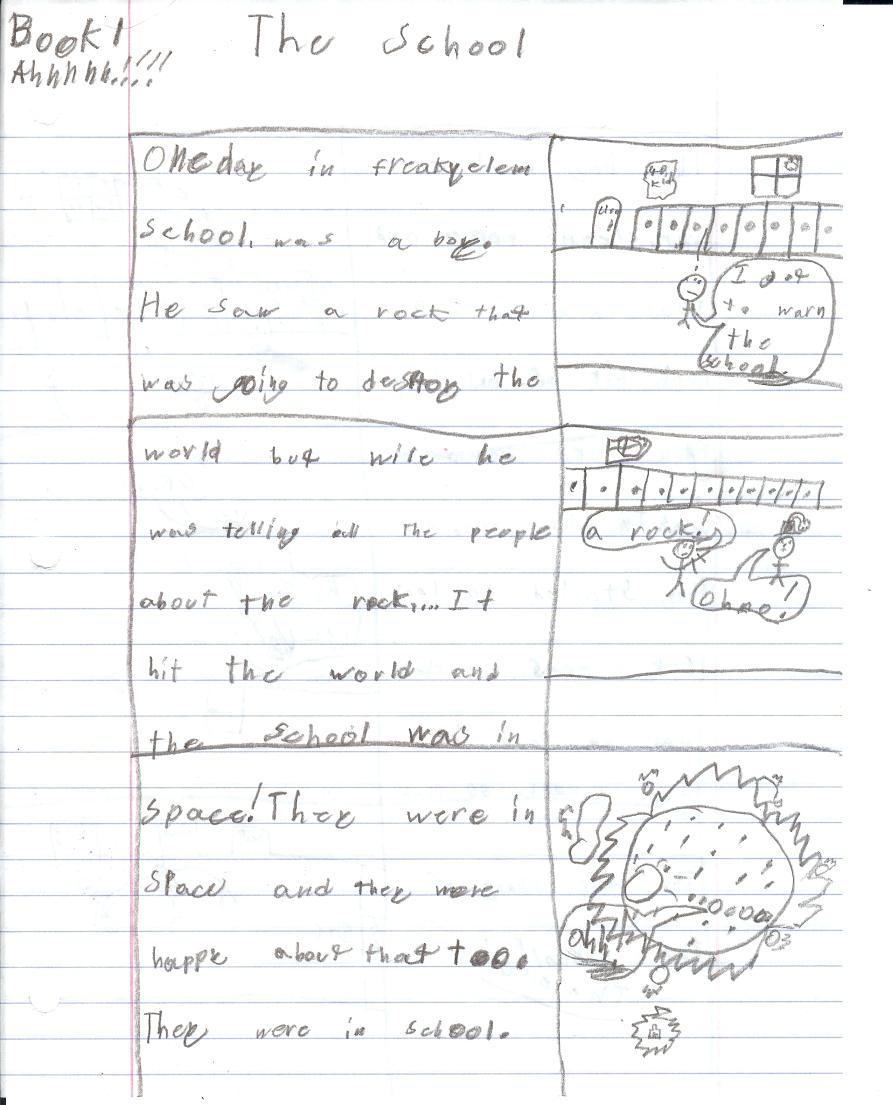 Book!
Ahhhhh!!!!
The School
One day in freaky elem
school, was a boy.
He saw a rock that
was going to destroy the
I got
to warn
the
school
world but wile he
was telling all The people
about the rock,... It
hit the world and
the school was in
a rock!
Oh no!
space! They were in
space and they were
happy about that too.
They were in school.
ahh